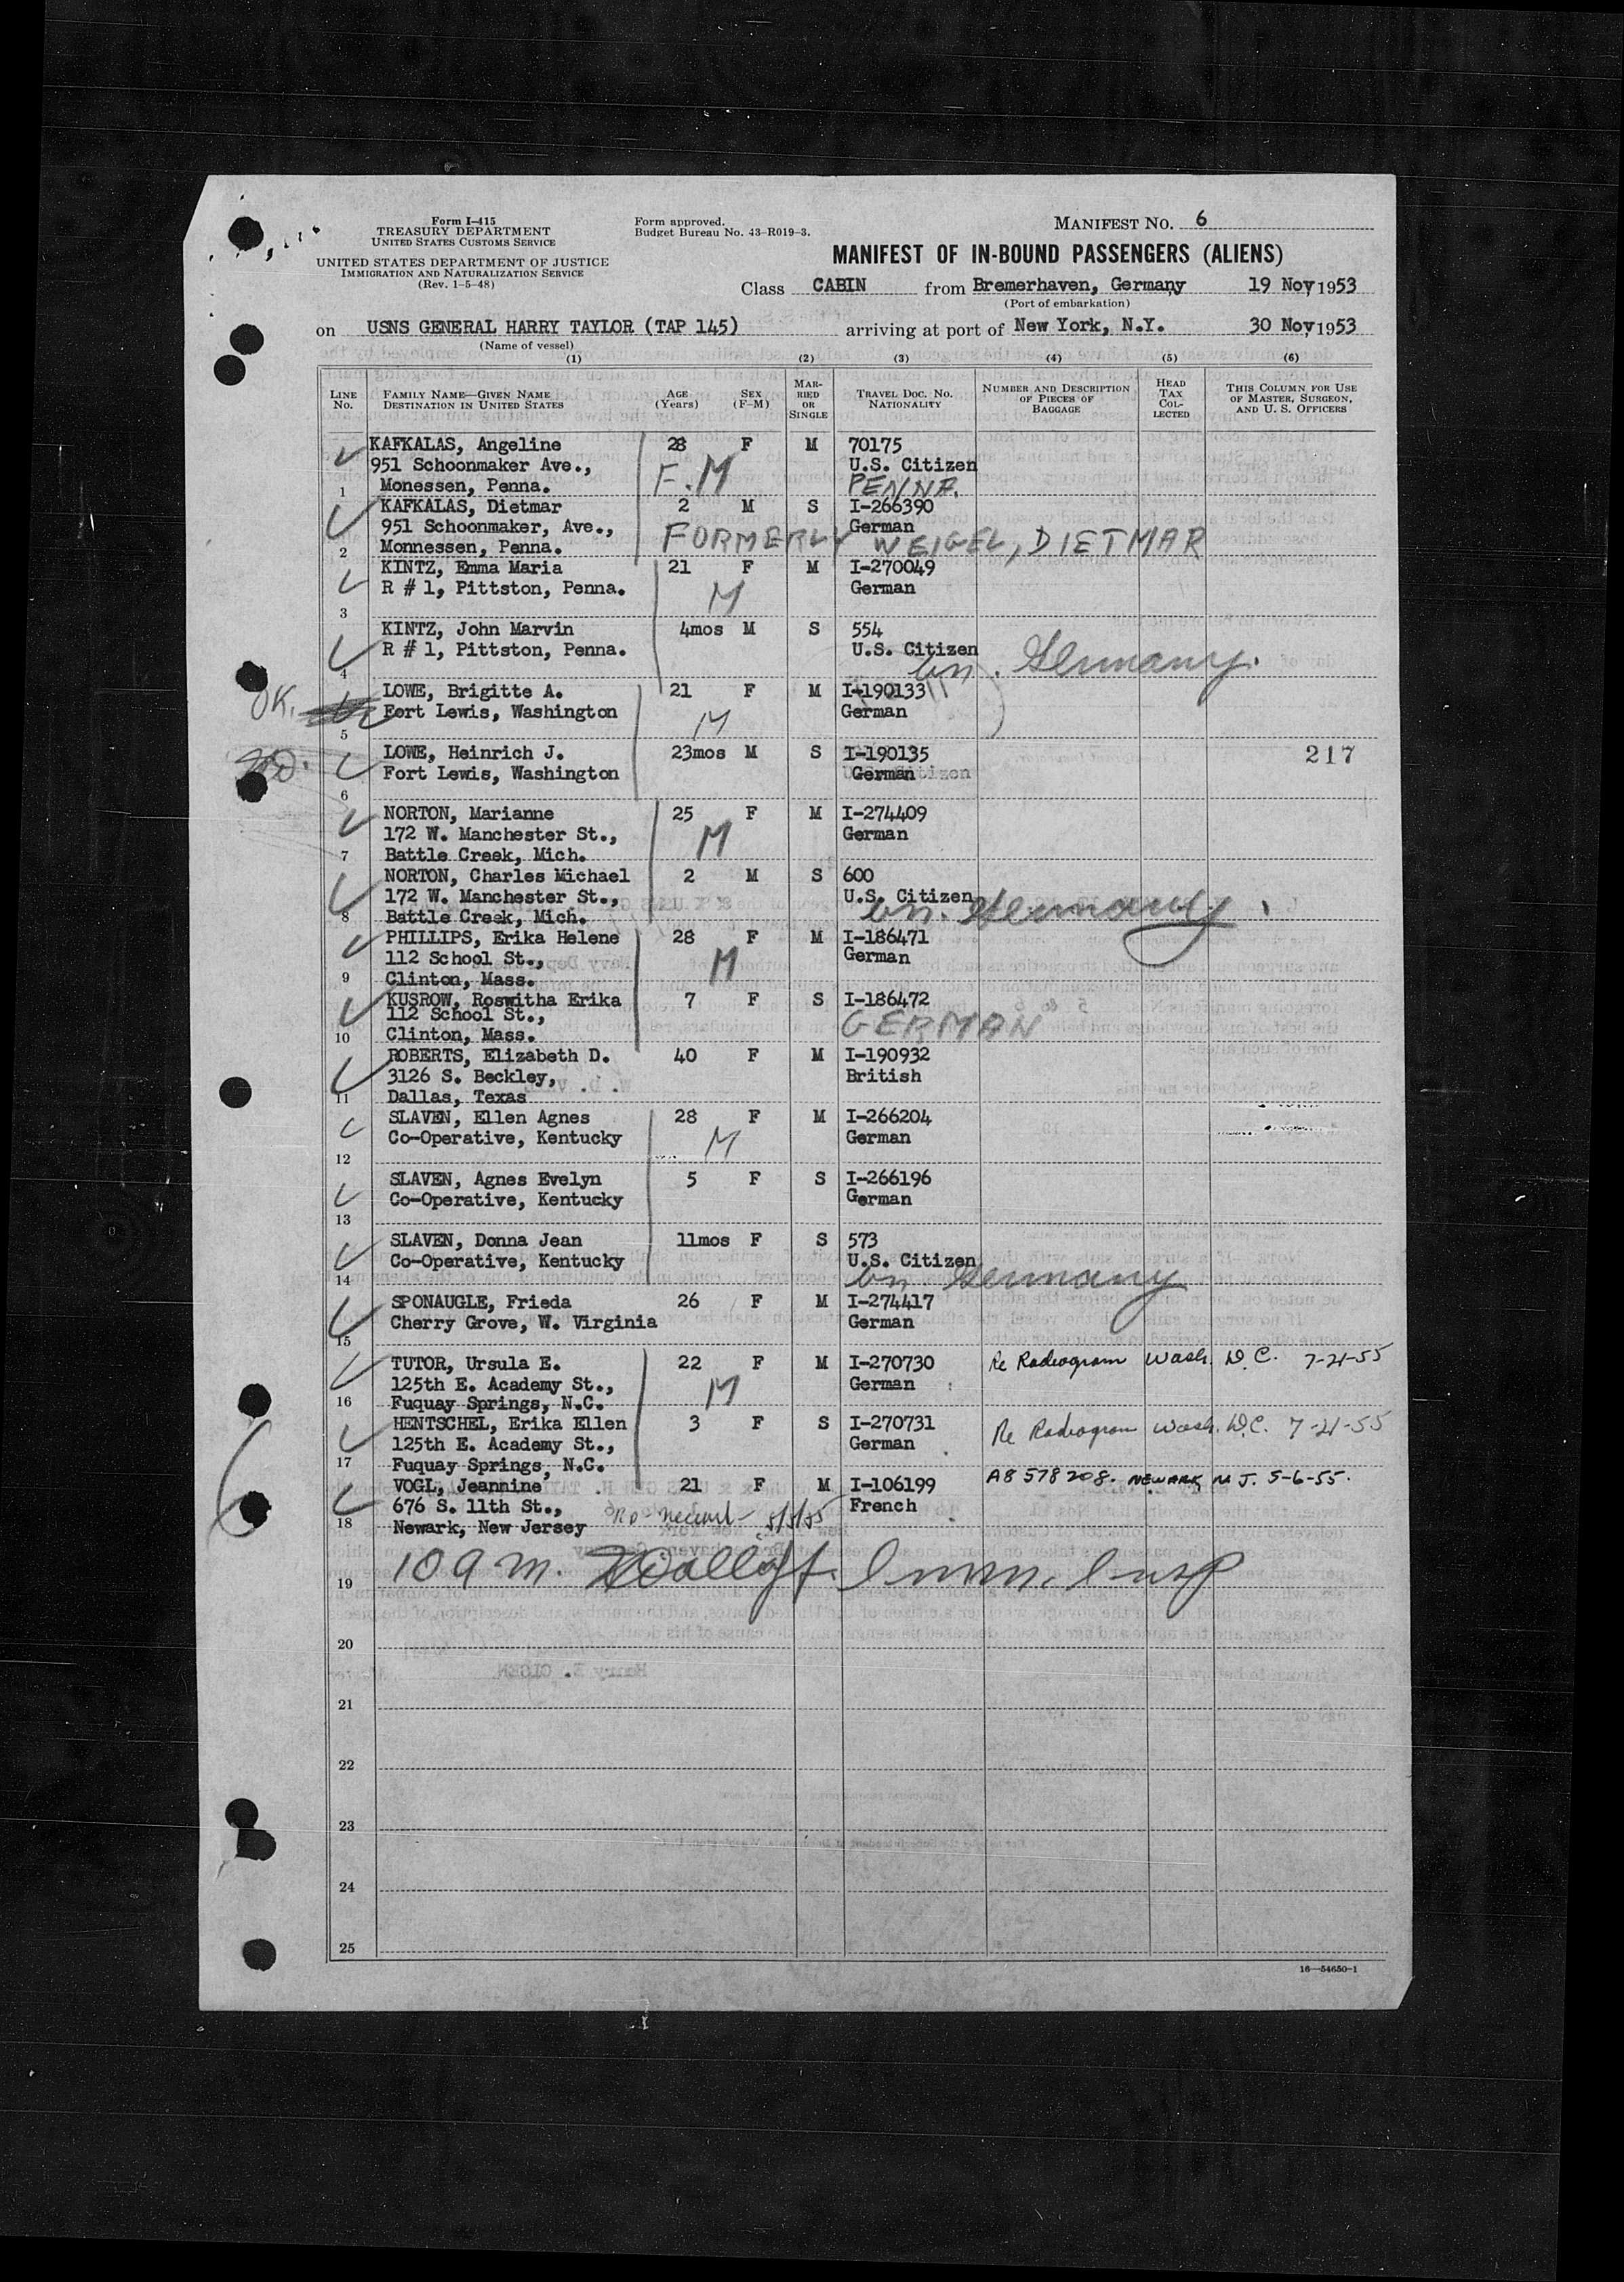 Form I-415
TREASURY DEPARTMENT
UNITED STATES CUSTOMS SERVICE
UNITED STATES DEPARTMENT OF JUSTICE
IMMIGRATION AND NATURALIZATION SERVICE
(Rev. 1-5-48)
Form approved.
Budget Bureau No. 43-R019-3.
MANIFEST NO. 6
MANIFEST OF IN-BOUND PASSENGERS (ALIENS)
Class CABIN from Bremerhaven, Germany 19 Nov 1953
(Port of embarkation)
on USNS GENERAL HARRY TAYLOR (TAP 145) arriving at port of New York, N.Y. 30 Nov 1953
(Name of vessel)
(1) (2) (3) (4) (5) (6)
LINE No. FAMILY NAME—GIVEN NAME DESTINATION IN UNITED STATES AGE (Years) SEX (F-M) MARRIED OR SINGLE TRAVEL DOC. NO. NATIONALITY NUMBER AND DESCRIPTION OF PIECES OF BAGGAGE HEAD TAX COLLECTED THIS COLUMN FOR USE OF MASTER, SURGEON, AND U. S. OFFICERS
KAFKALAS, Angeline 28 F M 70175
951 Schoonmaker Ave., F. M U.S. Citizen
1 Monessen, Penna. PENNA.
KAFKALAS, Dietmar 2 M S I-266390
951 Schoonmaker, Ave., German
2 Monnessen, Penna. FORMERLY WEIGEL, DIETMAR
KINTZ, Emma Maria 21 F M I-270049
R # 1, Pittston, Penna. M German
3
KINTZ, John Marvin 4mos M S 554
R # 1, Pittston, Penna. U.S. Citizen
4 bn. Germany.
OK. LOWE, Brigitte A. 21 F M I-190133
Fort Lewis, Washington M German
5
LOWE, Heinrich J. 23mos M S I-190135 217
Fort Lewis, Washington German
6
NORTON, Marianne 25 F M I-274409
172 W. Manchester St., M German
7 Battle Creek, Mich.
NORTON, Charles Michael 2 M S 600
172 W. Manchester St., U.S. Citizen
8 Battle Creek, Mich. bn. Germany
PHILLIPS, Erika Helene 28 F M I-186471
112 School St., M German
9 Clinton, Mass.
KUSROW, Roswitha Erika 7 F S I-186472
112 School St., GERMAN
10 Clinton, Mass.
ROBERTS, Elizabeth D. 40 F M I-190932
3126 S. Beckley, British
11 Dallas, Texas
SLAVEN, Ellen Agnes 28 F M I-266204
Co-Operative, Kentucky M German
12
SLAVEN, Agnes Evelyn 5 F S I-266196
Co-Operative, Kentucky German
13
SLAVEN, Donna Jean 11mos F S 573
Co-Operative, Kentucky U.S. Citizen
14 bn. Germany
SPONAUGLE, Frieda 26 F M I-274417
Cherry Grove, W. Virginia German
15
TUTOR, Ursula E. 22 F M I-270730 Re Radiogram Wash. D.C. 7-21-55
125th E. Academy St., M German
16 Fuquay Springs, N.C.
HENTSCHEL, Erika Ellen 3 F S I-270731 Re Radiogram Wash. D.C. 7-21-55
125th E. Academy St., German
17 Fuquay Springs, N.C.
VOGL, Jeannine 21 F M I-106199 A8 578 208. NEWARK N J. 5-6-55.
676 S. 11th St., French
18 Newark, New Jersey 5/5/55
19 10 a m. Imm. Insp
20
21
22
23
24
25
16—54650-1